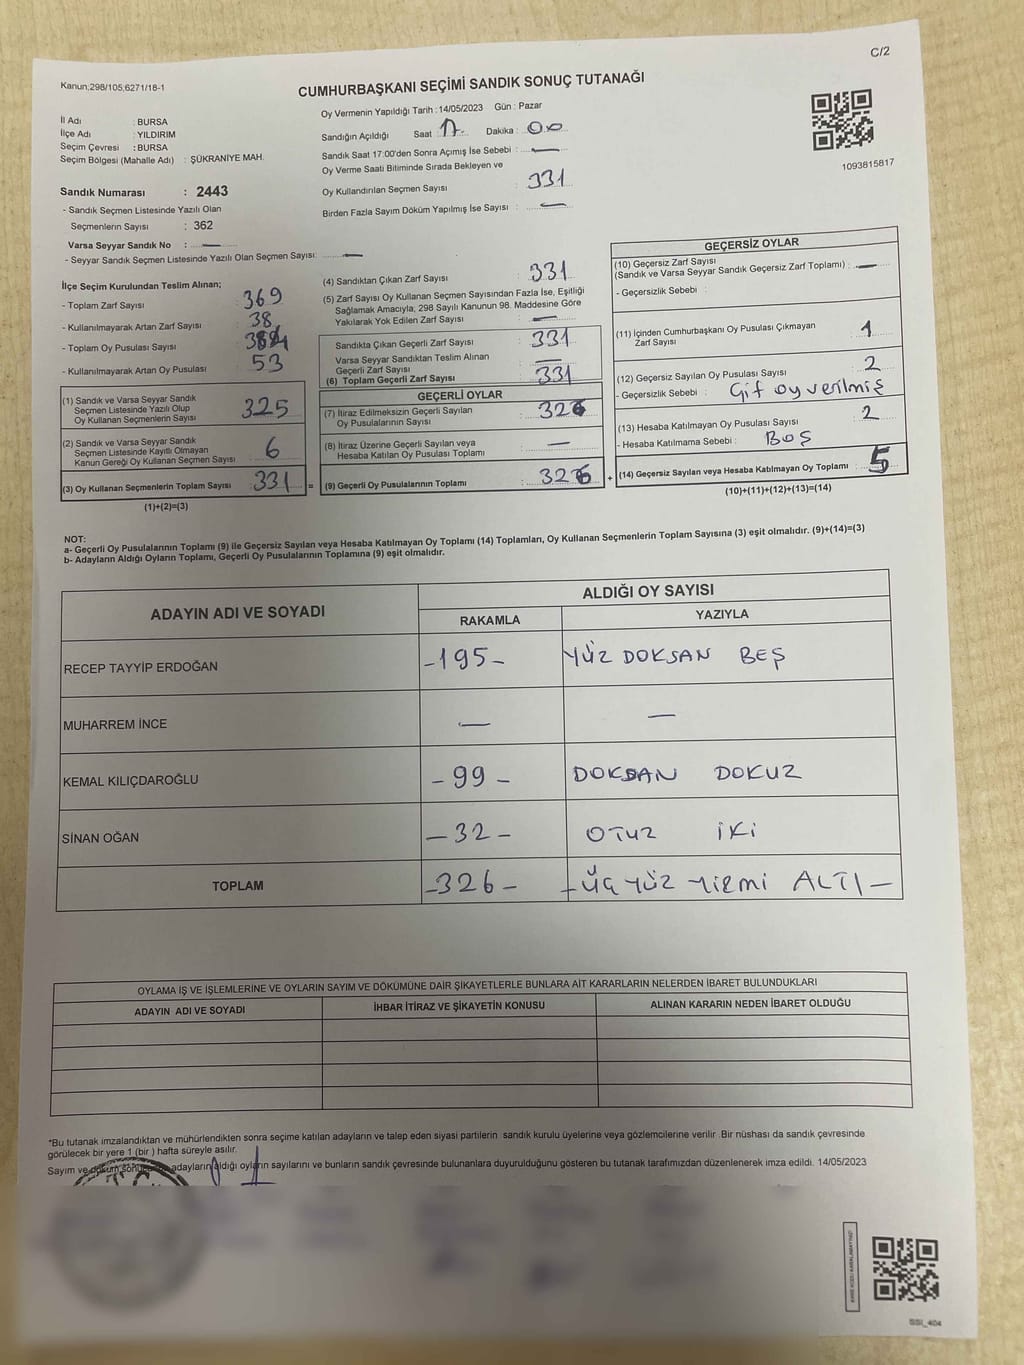 C/2
Kanun;298/105;6271/18-1
CUMHURBAŞKANI SEÇİMİ SANDIK SONUÇ TUTANAĞI
İl Adı : BURSA
İlçe Adı : YILDIRIM
Seçim Çevresi : BURSA
Seçim Bölgesi (Mahalle Adı) : ŞÜKRANİYE MAH.
Oy Vermenin Yapıldığı Tarih : 14/05/2023 Gün : Pazar
Sandığın Açıldığı Saat 17. Dakika : 00
Sandık Saat 17:00'den Sonra Açımış İse Sebebi : —
Oy Verme Saati Bitiminde Sırada Bekleyen ve
Oy Kullandırılan Seçmen Sayısı : 331
Birden Fazla Sayım Döküm Yapılmış İse Sayısı : —
1093815817
Sandık Numarası : 2443
- Sandık Seçmen Listesinde Yazılı Olan
Seçmenlerin Sayısı : 362
Varsa Seyyar Sandık No : —
- Seyyar Sandık Seçmen Listesinde Yazılı Olan Seçmen Sayısı: —
İlçe Seçim Kurulundan Teslim Alınan;
- Toplam Zarf Sayısı : 369
- Kullanılmayarak Artan Zarf Sayısı : 38
- Toplam Oy Pusulası Sayısı :
- Kullanılmayarak Artan Oy Pusulası : 53
(1) Sandık ve Varsa Seyyar Sandık
Seçmen Listesinde Yazılı Olup
Oy Kullanan Seçmenlerin Sayısı : 325
(2) Sandık ve Varsa Seyyar Sandık
Seçmen Listesinde Kayıtlı Olmayan
Kanun Gereği Oy Kullanan Seçmen Sayısı : 6
(3) Oy Kullanan Seçmenlerin Toplam Sayısı : 331 =
(1)+(2)=(3)
(4) Sandıktan Çıkan Zarf Sayısı : 331
(5) Zarf Sayısı Oy Kullanan Seçmen Sayısından Fazla İse, Eşitliği
Sağlamak Amacıyla, 298 Sayılı Kanunun 98. Maddesine Göre
Yakılarak Yok Edilen Zarf Sayısı : —
Sandıkta Çıkan Geçerli Zarf Sayısı : 331
Varsa Seyyar Sandıktan Teslim Alınan
Geçerli Zarf Sayısı : —
(6) Toplam Geçerli Zarf Sayısı : 331
GEÇERLİ OYLAR
(7) İtiraz Edilmeksizin Geçerli Sayılan
Oy Pusulalarının Sayısı : 326
(8) İtiraz Üzerine Geçerli Sayılan veya
Hesaba Katılan Oy Pusulası Toplamı : —
(9) Geçerli Oy Pusulalarının Toplamı : 326 +
GEÇERSİZ OYLAR
(10) Geçersiz Zarf Sayısı
(Sandık ve Varsa Seyyar Sandık Geçersiz Zarf Toplamı) : —
- Geçersizlik Sebebi :
(11) İçinden Cumhurbaşkanı Oy Pusulası Çıkmayan
Zarf Sayısı : 1
(12) Geçersiz Sayılan Oy Pusulası Sayısı : 2
- Geçersizlik Sebebi : Çif oy verilmiş
(13) Hesaba Katılmayan Oy Pusulası Sayısı : 2
- Hesaba Katılmama Sebebi : BOŞ
(14) Geçersiz Sayılan veya Hesaba Katılmayan Oy Toplamı : 5
(10)+(11)+(12)+(13)=(14)
NOT:
a- Geçerli Oy Pusulalarının Toplamı (9) ile Geçersiz Sayılan veya Hesaba Katılmayan Oy Toplamı (14) Toplamları, Oy Kullanan Seçmenlerin Toplam Sayısına (3) eşit olmalıdır. (9)+(14)=(3)
b- Adayların Aldığı Oyların Toplamı, Geçerli Oy Pusulalarının Toplamına (9) eşit olmalıdır.
ADAYIN ADI VE SOYADI
ALDIĞI OY SAYISI
RAKAMLA YAZIYLA
RECEP TAYYİP ERDOĞAN -195- YÜZ DOKSAN BEŞ
MUHARREM İNCE — —
KEMAL KILIÇDAROĞLU -99- DOKSAN DOKUZ
SİNAN OĞAN -32- OTUZ İKİ
TOPLAM -326- -ÜÇ YÜZ YİRMİ ALTI-
OYLAMA İŞ VE İŞLEMLERİNE VE OYLARIN SAYIM VE DÖKÜMÜNE DAİR ŞİKAYETLERLE BUNLARA AİT KARARLARIN NELERDEN İBARET BULUNDUKLARI
ADAYIN ADI VE SOYADI İHBAR İTİRAZ VE ŞİKAYETİN KONUSU ALINAN KARARIN NEDEN İBARET OLDUĞU
*Bu tutanak imzalandıktan ve mühürlendikten sonra seçime katılan adayların ve talep eden siyasi partilerin sandık kurulu üyelerine veya gözlemcilerine verilir .Bir nüshası da sandık çevresinde
görülecek bir yere 1 (bir ) hafta süreyle asılır.
Sayım ve döküm sonucu adayların aldığı oyların sayılarını ve bunların sandık çevresinde bulunanlara duyurulduğunu gösteren bu tutanak tarafımızdan düzenlenerek imza edildi. 14/05/2023
SSI_404